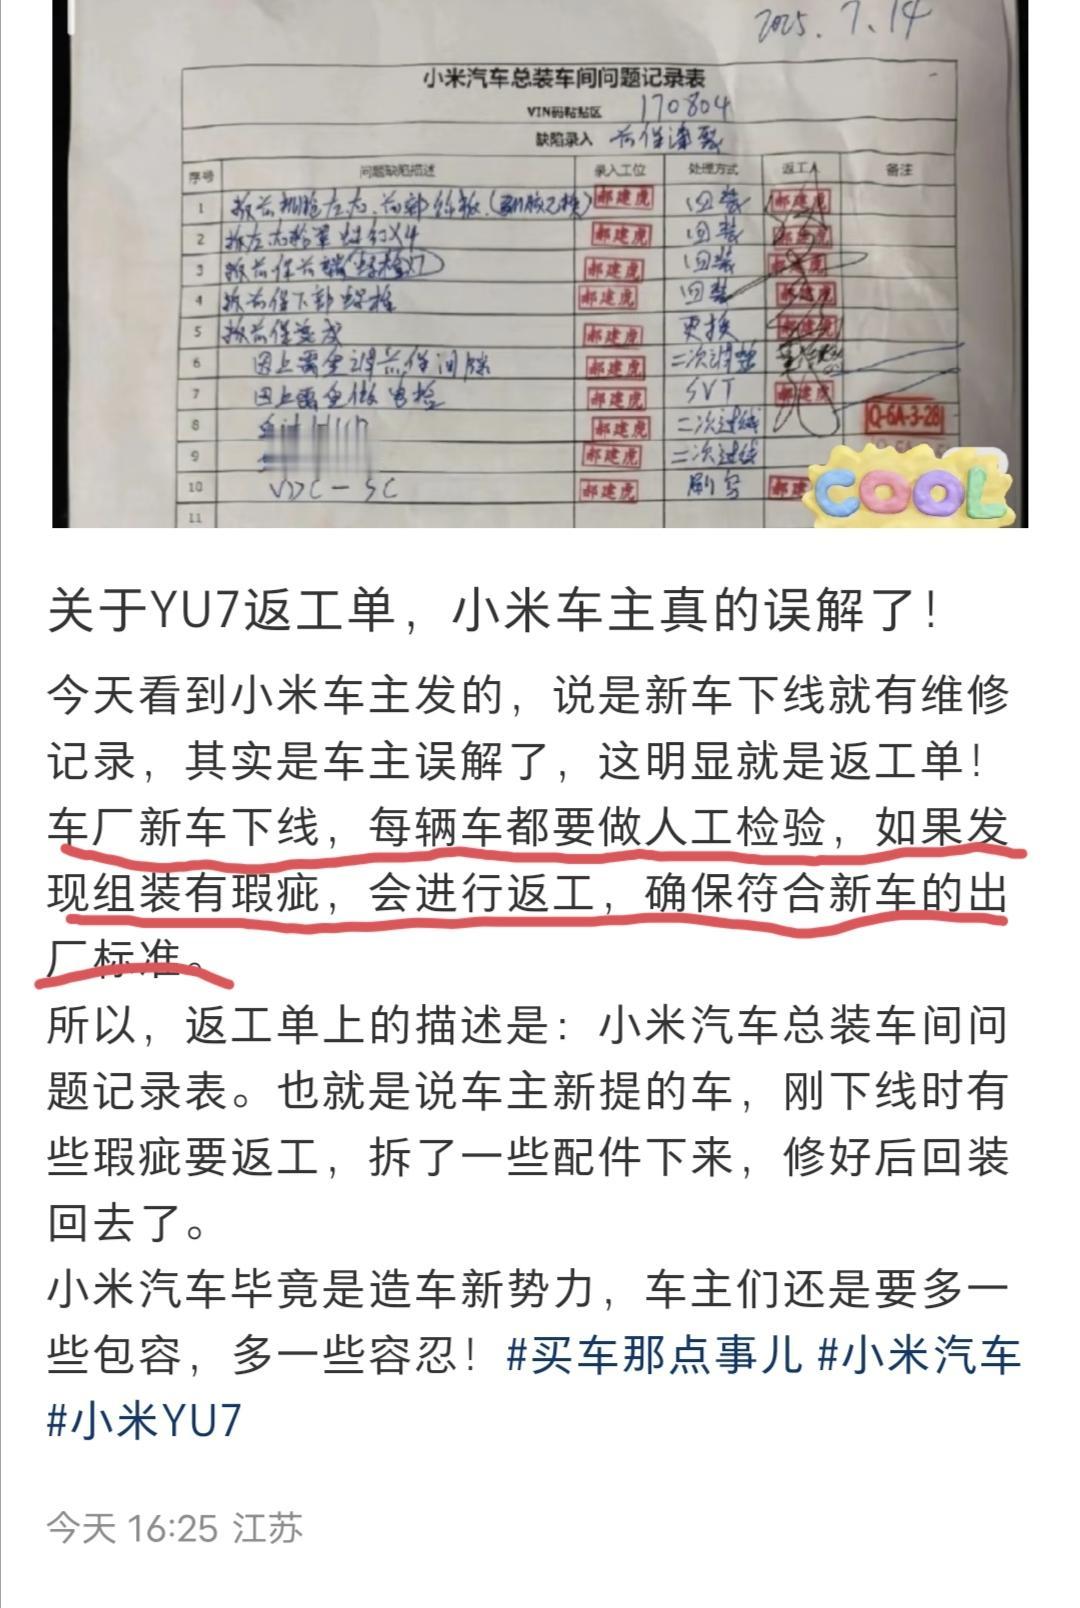 2025.7.14
小米汽车总装车间问题记录表
VIN码粘贴区 170804
缺陷录入 前保漆裂
序号 问题缺陷描述 录入工位 处理方式 返工人 备注
1 郝建虎 回装 郝建虎
2 郝建虎 回装 郝建虎
3 郝建虎 回装 郝建虎
4 拆前保下部螺栓 郝建虎 回装 郝建虎
5 拆前保总成 郝建虎 更换 郝建虎
6 因上需全调前保间隙 郝建虎 二次调整
7 因上需全做电检 郝建虎 SVT 郝建虎
8 郝建虎 二次过线 Q-6A-3-28
9 郝建虎 二次过线
10 VDC-SC 郝建虎 刷写 郝建
11
COOL
关于YU7返工单，小米车主真的误解了！
今天看到小米车主发的，说是新车下线就有维修
记录，其实是车主误解了，这明显就是返工单！
车厂新车下线，每辆车都要做人工检验，如果发
现组装有瑕疵，会进行返工，确保符合新车的出
厂标准。
所以，返工单上的描述是：小米汽车总装车间问
题记录表。也就是说车主新提的车，刚下线时有
些瑕疵要返工，拆了一些配件下来，修好后回装
回去了。
小米汽车毕竟是造车新势力，车主们还是要多一
些包容，多一些容忍！#买车那点事儿 #小米汽车
#小米YU7
今天 16:25 江苏